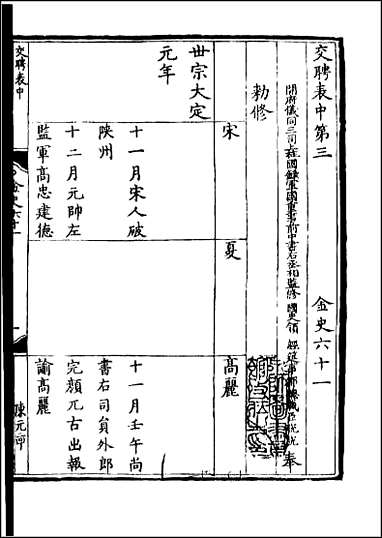 交聘表中第三 金史六十一
開府儀同三司上柱國錄軍國重事前中書右丞相監修國史領 經筵事都總裁臣脫脫 奉
勅修
宋 夏 高麗
世宗大定
元年
十一月宋人破
陝州
十二月元帥左
監軍高忠建德
十一月壬午尚
書右司員外郎
完顏兀古出報
諭高麗
交聘表中 金史六十一 一